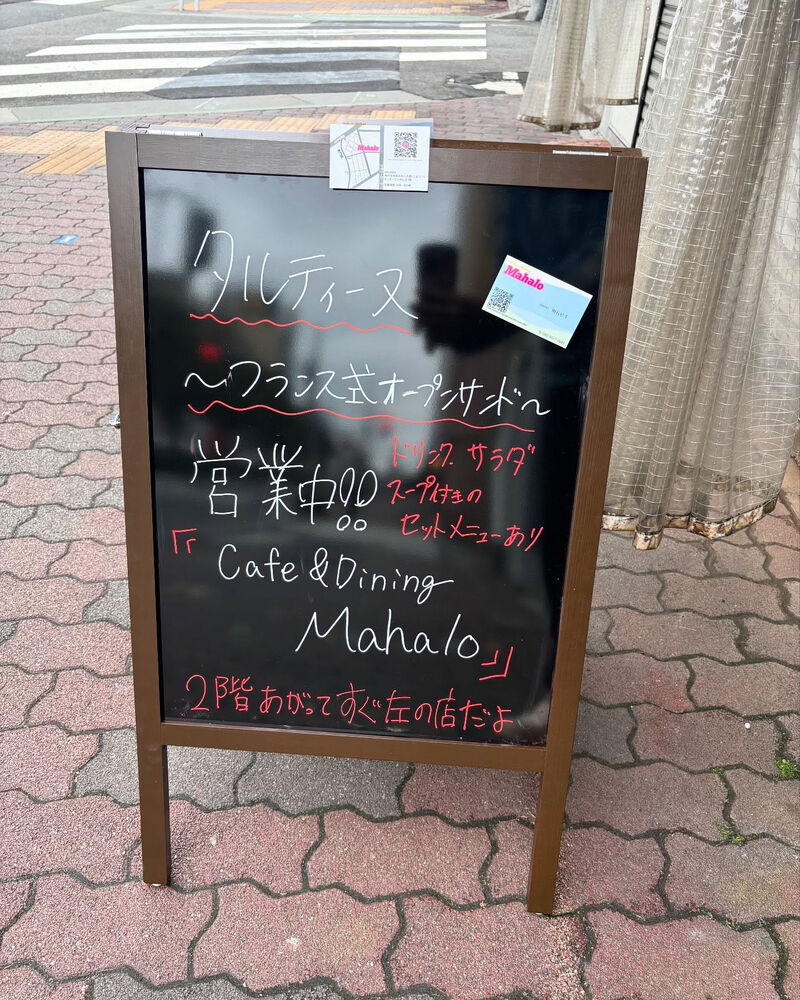 Mahalo
タルティーヌ
Mahalo
〜フランス式オープンサンド〜
営業中!!
ドリンク、サラダ
スープ付きの
セットメニューあり
『Cafe & Dining
Mahalo』
2階あがってすぐ左の店だよ